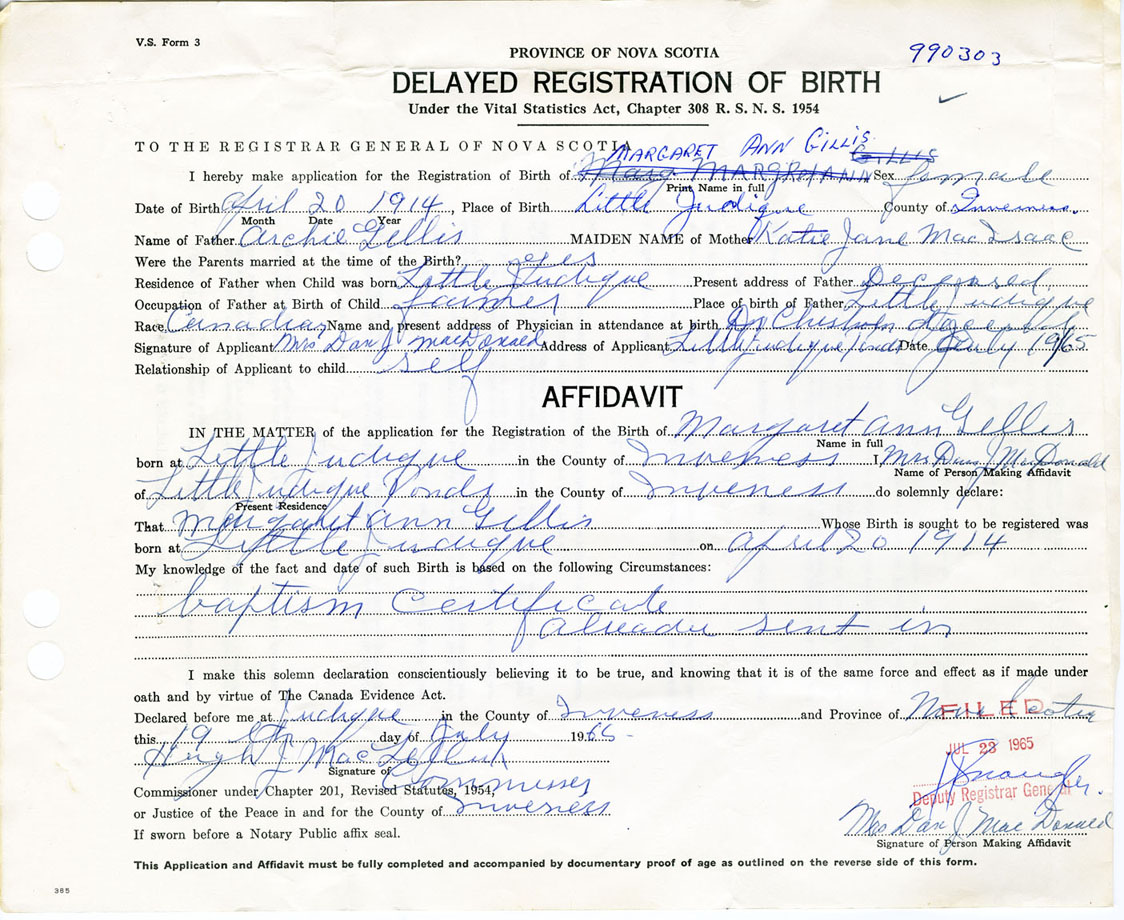 V.S. Form 3
PROVINCE OF NOVA SCOTIA
990303
DELAYED REGISTRATION OF BIRTH
Under the Vital Statistics Act, Chapter 308 R. S. N. S. 1954
TO THE REGISTRAR GENERAL OF NOVA SCOTIA
MARGARET ANN GILLIS
GILLIS
I hereby make application for the Registration of Birth of Mary MARGRET ANN Sex female
Print Name in full
Date of Birth April 20 1914, Place of Birth Little Judique County of Inverness.
Month Date Year
Name of Father Archie Gillis MAIDEN NAME of Mother Katie Jane MacIsaac
Were the Parents married at the time of the Birth? yes
Residence of Father when Child was born Little Judique Present address of Father Deceased
Occupation of Father at Birth of Child farmer Place of birth of Father Little Judique
Race Canadian Name and present address of Physician in attendance at birth Dr Chisholm
Signature of Applicant Mrs Dan J MacDonald Address of Applicant Little Judique Ponds Date July 19/65
Relationship of Applicant to child self
AFFIDAVIT
IN THE MATTER of the application for the Registration of the Birth of Margaret Ann Gillis
Name in full
born at Little Judique in the County of Inverness I, Mrs Dan J MacDonald
Name of Person Making Affidavit
of Little Judique Ponds in the County of Inverness do solemnly declare:
Present Residence
That Margaret Ann Gillis Whose Birth is sought to be registered was
born at Little Judique on April 20 1914
My knowledge of the fact and date of such Birth is based on the following Circumstances:
baptism Certificate
already sent in
I make this solemn declaration conscientiously believing it to be true, and knowing that it is of the same force and effect as if made under
oath and by virtue of The Canada Evidence Act.
Declared before me at Judique in the County of Inverness and Province of Nova Scotia
FILED
this 19 th day of July 1965
JUL 23 1965
Hugh J MacLellan
Signature of
Commissioner under Chapter 201, Revised Statutes, 1954,
Deputy Registrar General
or Justice of the Peace in and for the County of Inverness
Mrs Dan J MacDonald
If sworn before a Notary Public affix seal.
Signature of Person Making Affidavit
This Application and Affidavit must be fully completed and accompanied by documentary proof of age as outlined on the reverse side of this form.
365